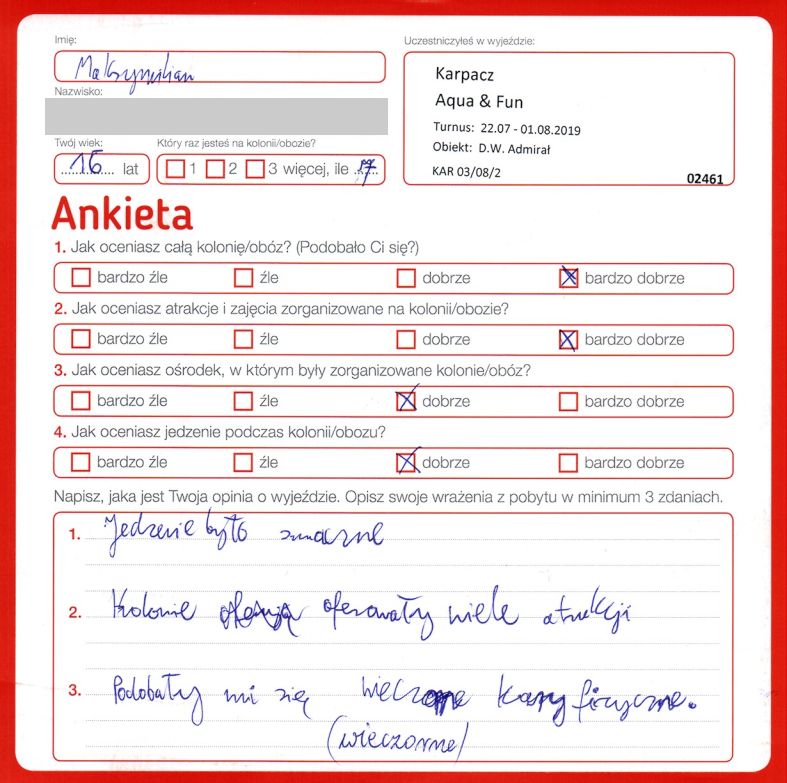 Imię:
Maksymilian
Nazwisko:
Twój wiek:
16 lat
Który raz jesteś na kolonii/obozie?
1 2 3 więcej, ile 17
Uczestniczyłeś w wyjeździe:
Karpacz
Aqua & Fun
Turnus: 22.07 - 01.08.2019
Obiekt: D.W. Admirał
KAR 03/08/2
02461
Ankieta
1. Jak oceniasz całą kolonię/obóz? (Podobało Ci się?)
bardzo źle źle dobrze bardzo dobrze
2. Jak oceniasz atrakcje i zajęcia zorganizowane na kolonii/obozie?
bardzo źle źle dobrze bardzo dobrze
3. Jak oceniasz ośrodek, w którym były zorganizowane kolonie/obóz?
bardzo źle źle dobrze bardzo dobrze
4. Jak oceniasz jedzenie podczas kolonii/obozu?
bardzo źle źle dobrze bardzo dobrze
Napisz, jaka jest Twoja opinia o wyjeździe. Opisz swoje wrażenia z pobytu w minimum 3 zdaniach.
1. Jedzenie było smaczne
2. Kolonie oferowały wiele atrakcji
3. Podobały mi się kary fizyczne.
(wieczorne)